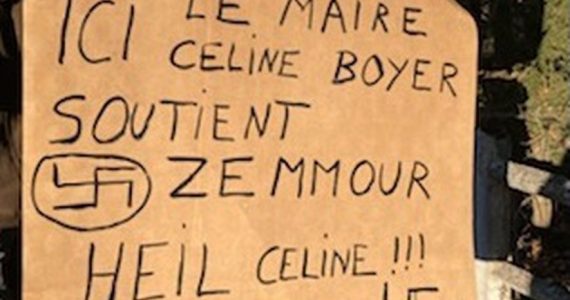 ICI LE MAIRE
CELINE BOYER
SOUTIENT
ZEMMOUR
HEIL CELINE !!!
LE